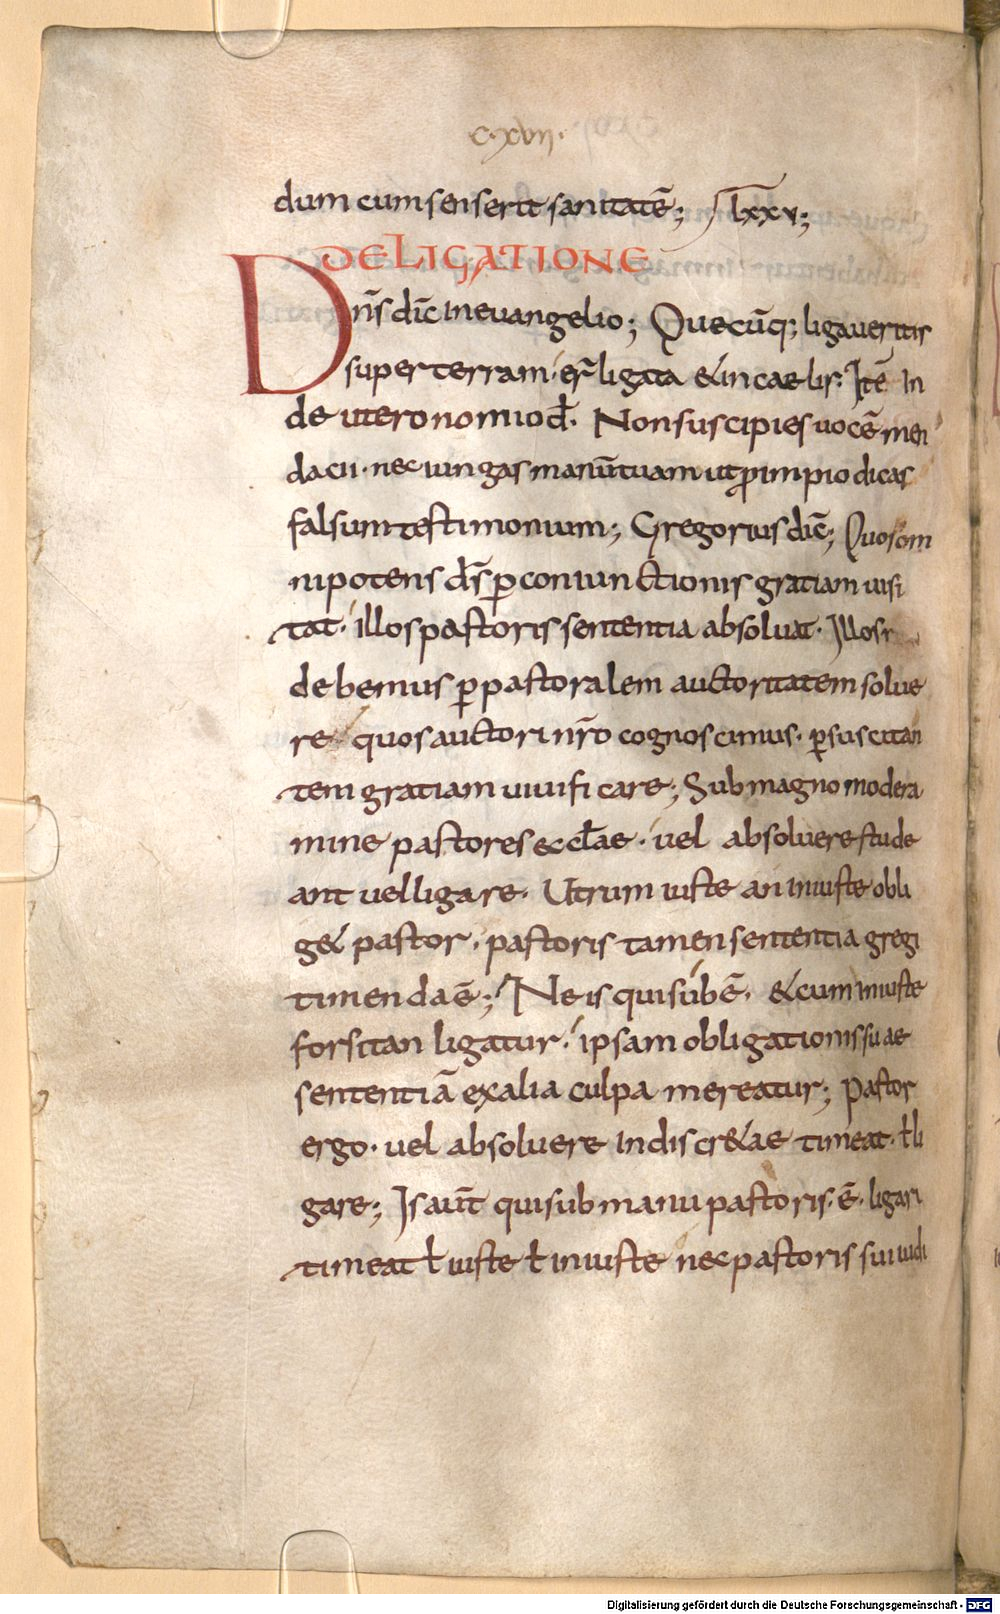 C·XVII·
dum cum senserit sanitatē; LXXV;
DE LIGATIONE
Dn̄s dic̄ In evangelio; Quecūq; ligaveritis
super terram· er̄ ligata & in caelis: Itē In
deuteronomio d̄· Non suscipies uocē men
dacii· nec iungas manū tuam ut pro impio dicas
falsum testimonium; Gregorius dic̄; Quos om
nipotens ds̄ ꝑ conpunctionis gratiam uisi
tat· illos pastoris sententia absoluat· Illos
debemus ꝑ pastoralem auctoritatem solue
re quos auctori nr̄o cognoscimus· ꝑ suscitan
tem gratiam uiuificare; Sub magno modera
mine pastores eccłae· uel absoluere stude
ant uel ligare· Utrum iuste an iniuste obli
g& pastor· pastoris tamen sententia gregi
timenda ē; Ne is qui sub ē· & cum iniuste
forsitan ligatur· ipsam obligationis suae
sententiā ex alia culpa mereatur; Pastor
ergo· uel absoluere indiscr&ae timeat· ł li
gare; Is aūt qui sub manu pastoris· ē· ligari
timeat ł iuste ł iniuste nec pastoris sui iudi
Digitalisierung gefördert durch die Deutsche Forschungsgemeinschaft - DFG